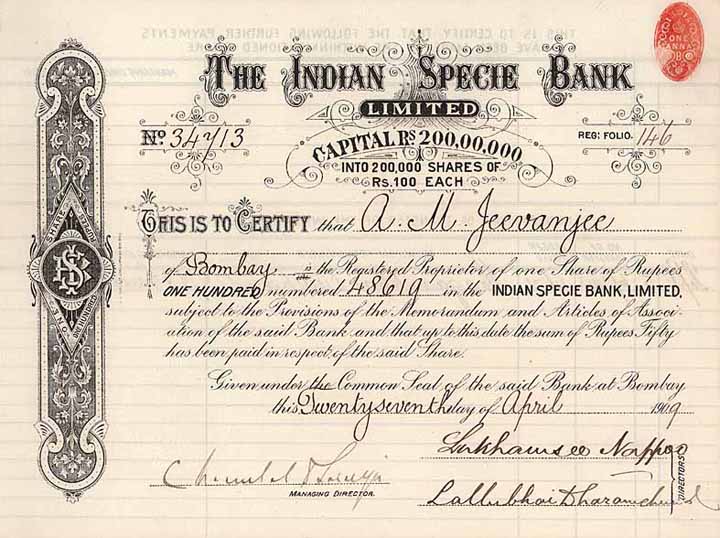 THE INDIAN SPECIE BANK
LIMITED
ONE ANNA
No. 34713
CAPITAL Rs 200,00,000
REG: FOLIO 146
INTO 200,000 SHARES OF
Rs.100 EACH
THIS IS TO CERTIFY that A. M. Jeevanjee
of Bombay is the Registered Proprietor of one Share of Rupees
ONE HUNDRED numbered 48619 in the INDIAN SPECIE BANK, LIMITED,
subject to the Provisions of the Memorandum and Articles of Associ-
ation of the said Bank and that up to this date the sum of Rupees Fifty
has been paid in respect of the said Share.
Given under the Common Seal of the said Bank at Bombay
this Twentyseventh day of April 1909
Lakhamsee Nappoo
MANAGING DIRECTOR.
Lallubhai Dharamchund
DIRECTORS